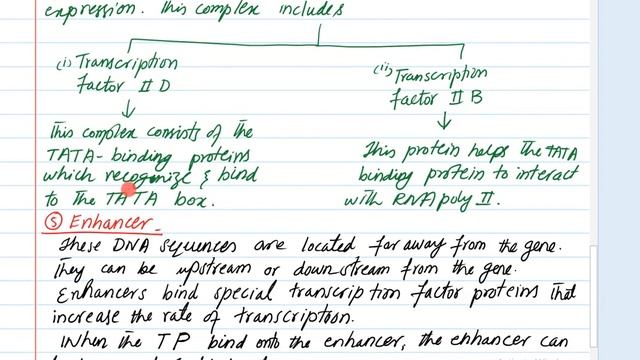 expression. This complex includes
(i) Transcription
factor II D
(ii) Transcription
factor II B
This complex consists of the
TATA-binding proteins
which recognize & bind
to the TATA box.
This protein helps the TATA
binding protein to interact
with RNA poly II.
⑤ Enhancer -
These DNA sequences are located far away from the gene.
They can be upstream or downstream from the gene.
Enhancers bind special transcription factor proteins that
increase the rate of transcription.
When the TP bind onto the enhancer, the enhancer can